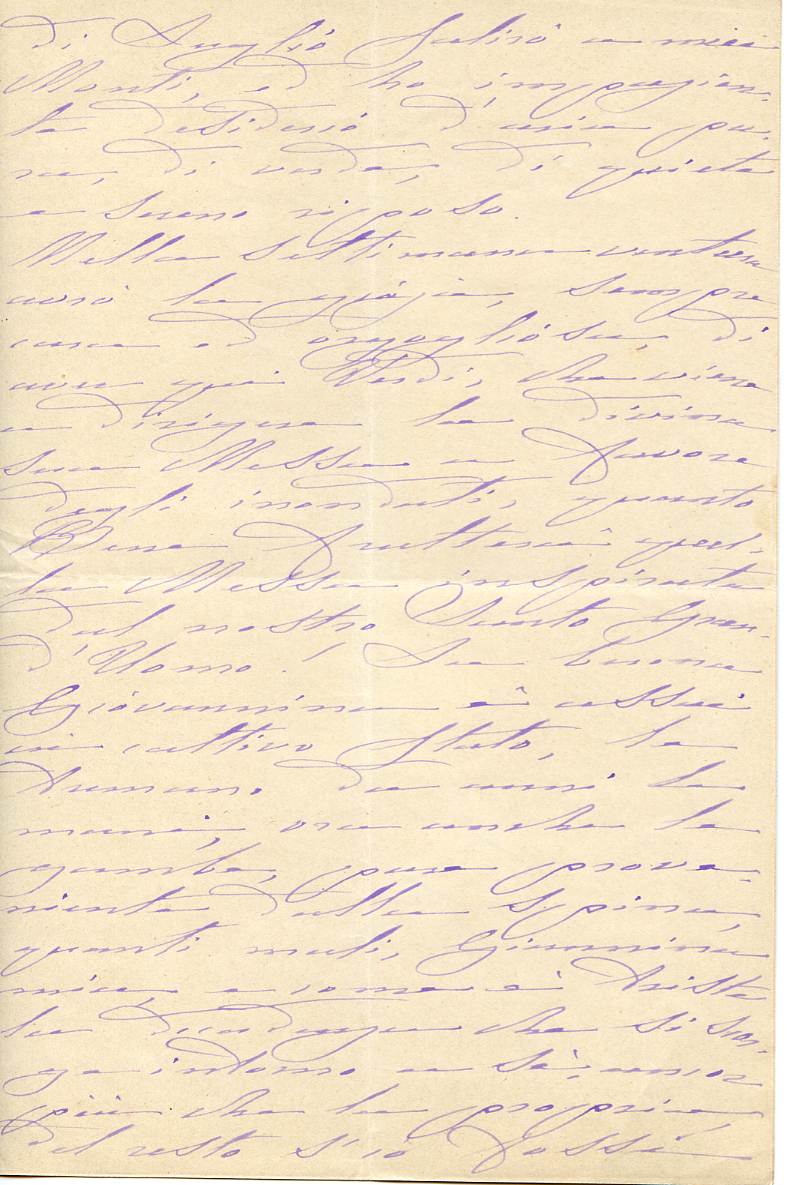 di Luglio salirò a miei
Monti, ed ho impazien-
te desiderio d'aria pu-
ra, di verde, di quiete
e sereno riposo.
Nella settimana ventura
avrò la gioja, sempre
cara ed orgogliosa, di
aver qui Verdi, che viene
a dirigere la divina
sua Messa a favore
degli inondati, quanto
Bene frutterà quel-
la Messa inspirata
dal nostro Santo Gran-
d'Uomo! La buona
Giovannina è assai
in cattivo stato, le
tremano da anni le
mani, ora anche le
gambe, pare prove-
niente dalla spina,
quanti mali, Giannina
mia, e come è triste
la che si scor-
ge intorno a sè, ancor
più che la propria,
del resto s'io fossi